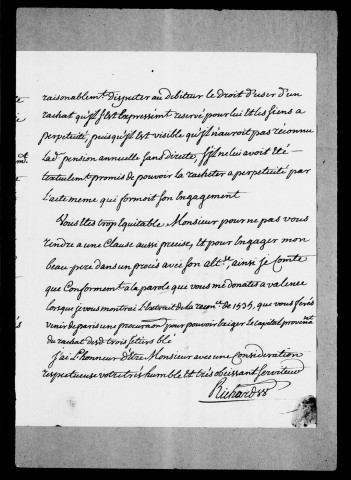 raisonablemt. disputer au debiteur le droit d'user d'un
rachat qu'jl s'est expressémt. reservé pour lui et les siens a
perpetuité, puisqu'jl est visible qu'jl n'auroit pas reconnu
lad. pension annuelle sans directe, s'jl ne lui avoit été
textuelemt. promis de pouvoir la racheter a perpetuité par
l'acte meme qui formoit son engagement
Vous etes trop equitable Monsieur pour ne pas vous
rendre a une Clause aussi precise, et pour engager mon
beau pere dans un procès avec son alte. ainsi je Comte
que Conformemt. a la parole que vous me donates a valence
lorsque je vous montrai l'extrait de la recgnce. de 1535, que vous ferés
venir de paris une procuraōn pour pouvoir exiger le Capital provenant
du rachat desd. trois setiers blé
j'ai l'honneur d'etre Monsieur avec une Consideration
respectueuse votre tres humble et très obeissant serviteur
Richard